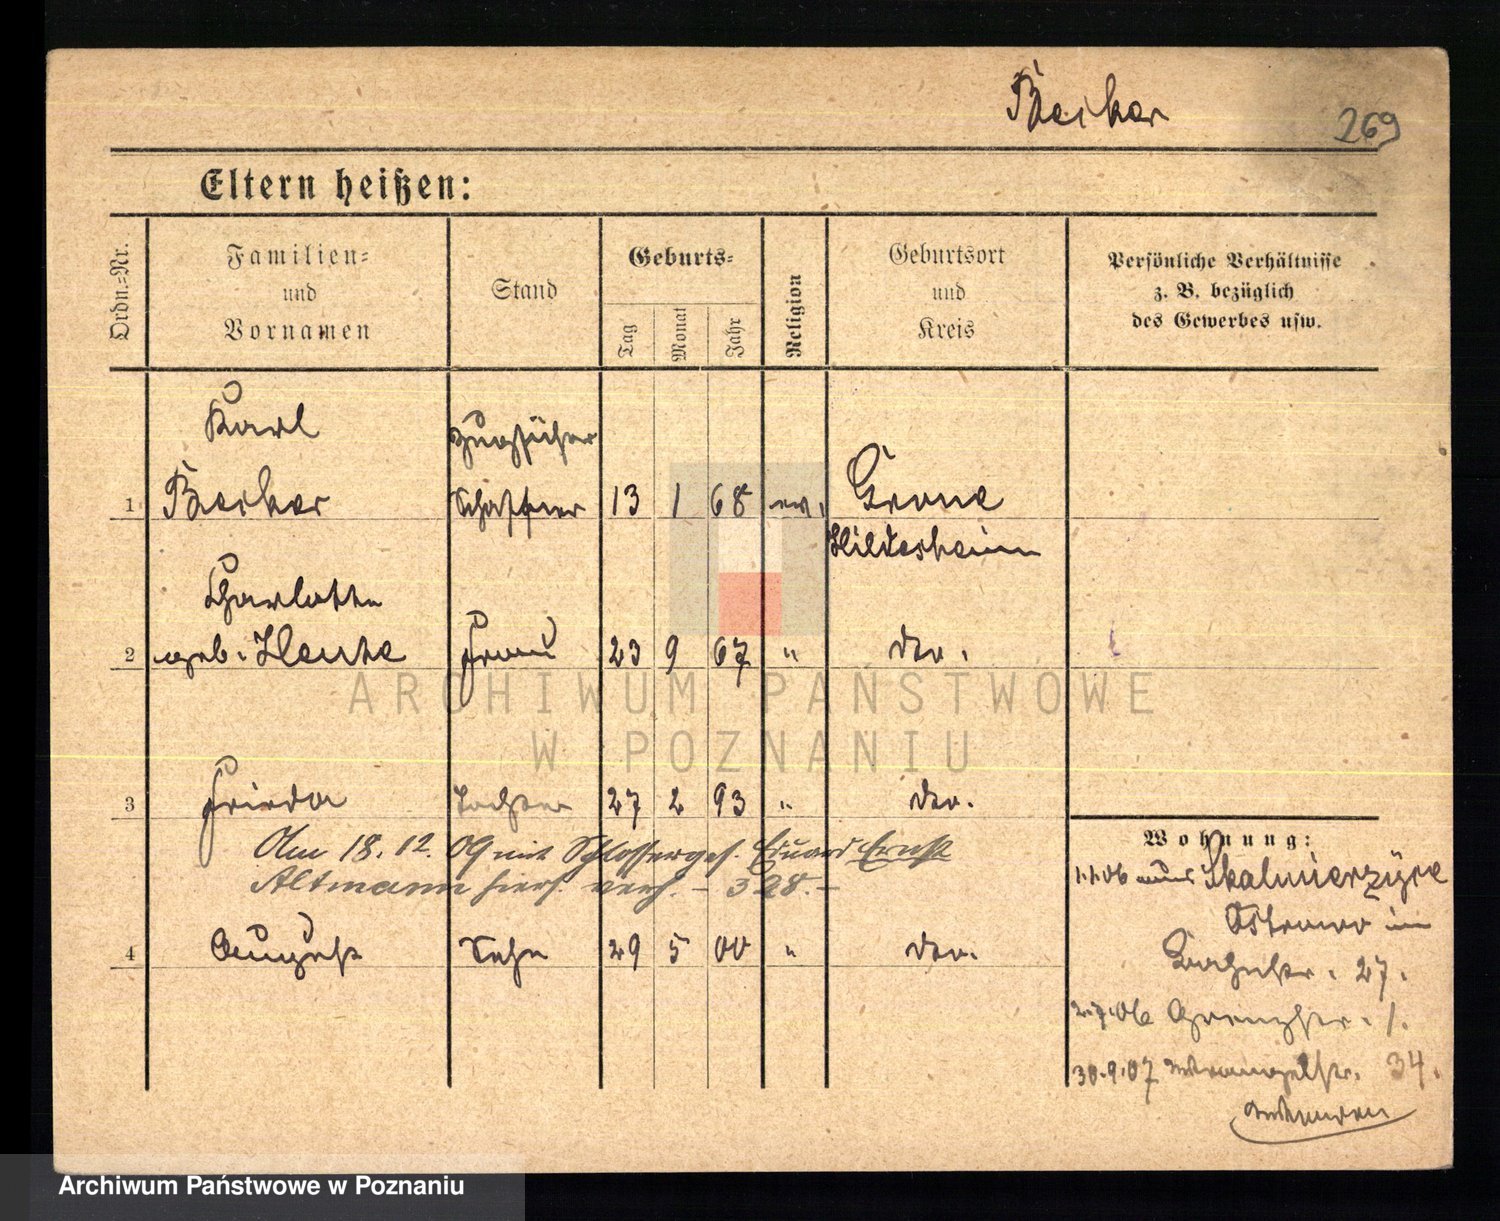 Becker
269
Eltern heißen:
Ordn.-Nr.
Familien-
und
Vornamen
Stand
Geburts-
Tag
Monat
Jahr
Religion
Geburtsort
und
Kreis
Persönliche Verhältnisse
z. B. bezüglich
des Gewerbes usw.
Karl
Zugführer
1 Becker Schaffner 13 1 68 ev. Grone
Hildesheim
Charlotte
2 geb. Frau 23 9 67 " do.
3 Frieda Tochter 27 2 93 " do.
Am 18.12.09 mit Schlosserges. Eduard Ernst
Altmann hiers. verh. - 328. -
4 August Sohn 29 5 00 " do.
Wohnung:
1.1.06 aus Skalmierzyce
Ostrowo in
27.
2.7.06 Grenzstr. 1.
30.9.07 Wrangelstr. 34.
ARCHIWUM PAŃSTWOWE
W POZNANIU
Archiwum Państwowe w Poznaniu